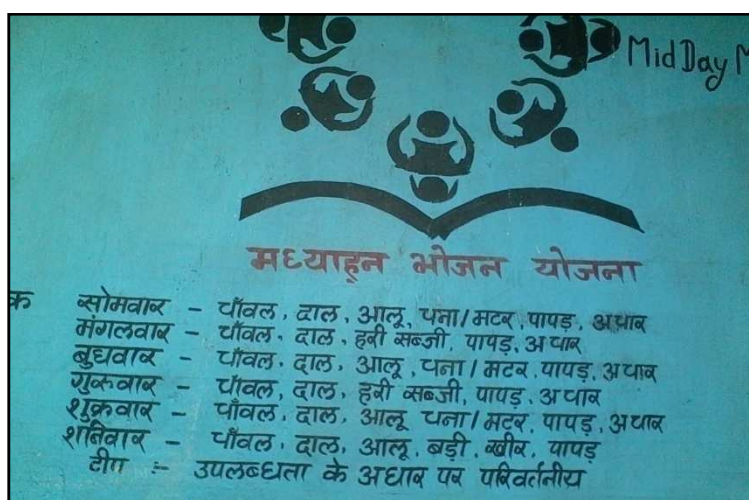 Mid Day M
मध्याह्न भोजन योजना
क सोमवार - चाँवल, दाल, आलू, चना/मटर, पापड़, अचार
मंगलवार - चाँवल, दाल, हरी सब्जी, पापड़, अचार
बुधवार - चाँवल, दाल, आलू, चना/मटर, पापड़, अचार
गुरुवार - चाँवल, दाल, हरी सब्जी, पापड़, अचार
शुक्रवार - चाँवल, दाल, आलू चना/मटर, पापड़, अचार
शनिवार - चाँवल, दाल, आलू, बड़ी, खीर, पापड़
टीप :- उपलब्धता के अधार पर परिवर्तनीय